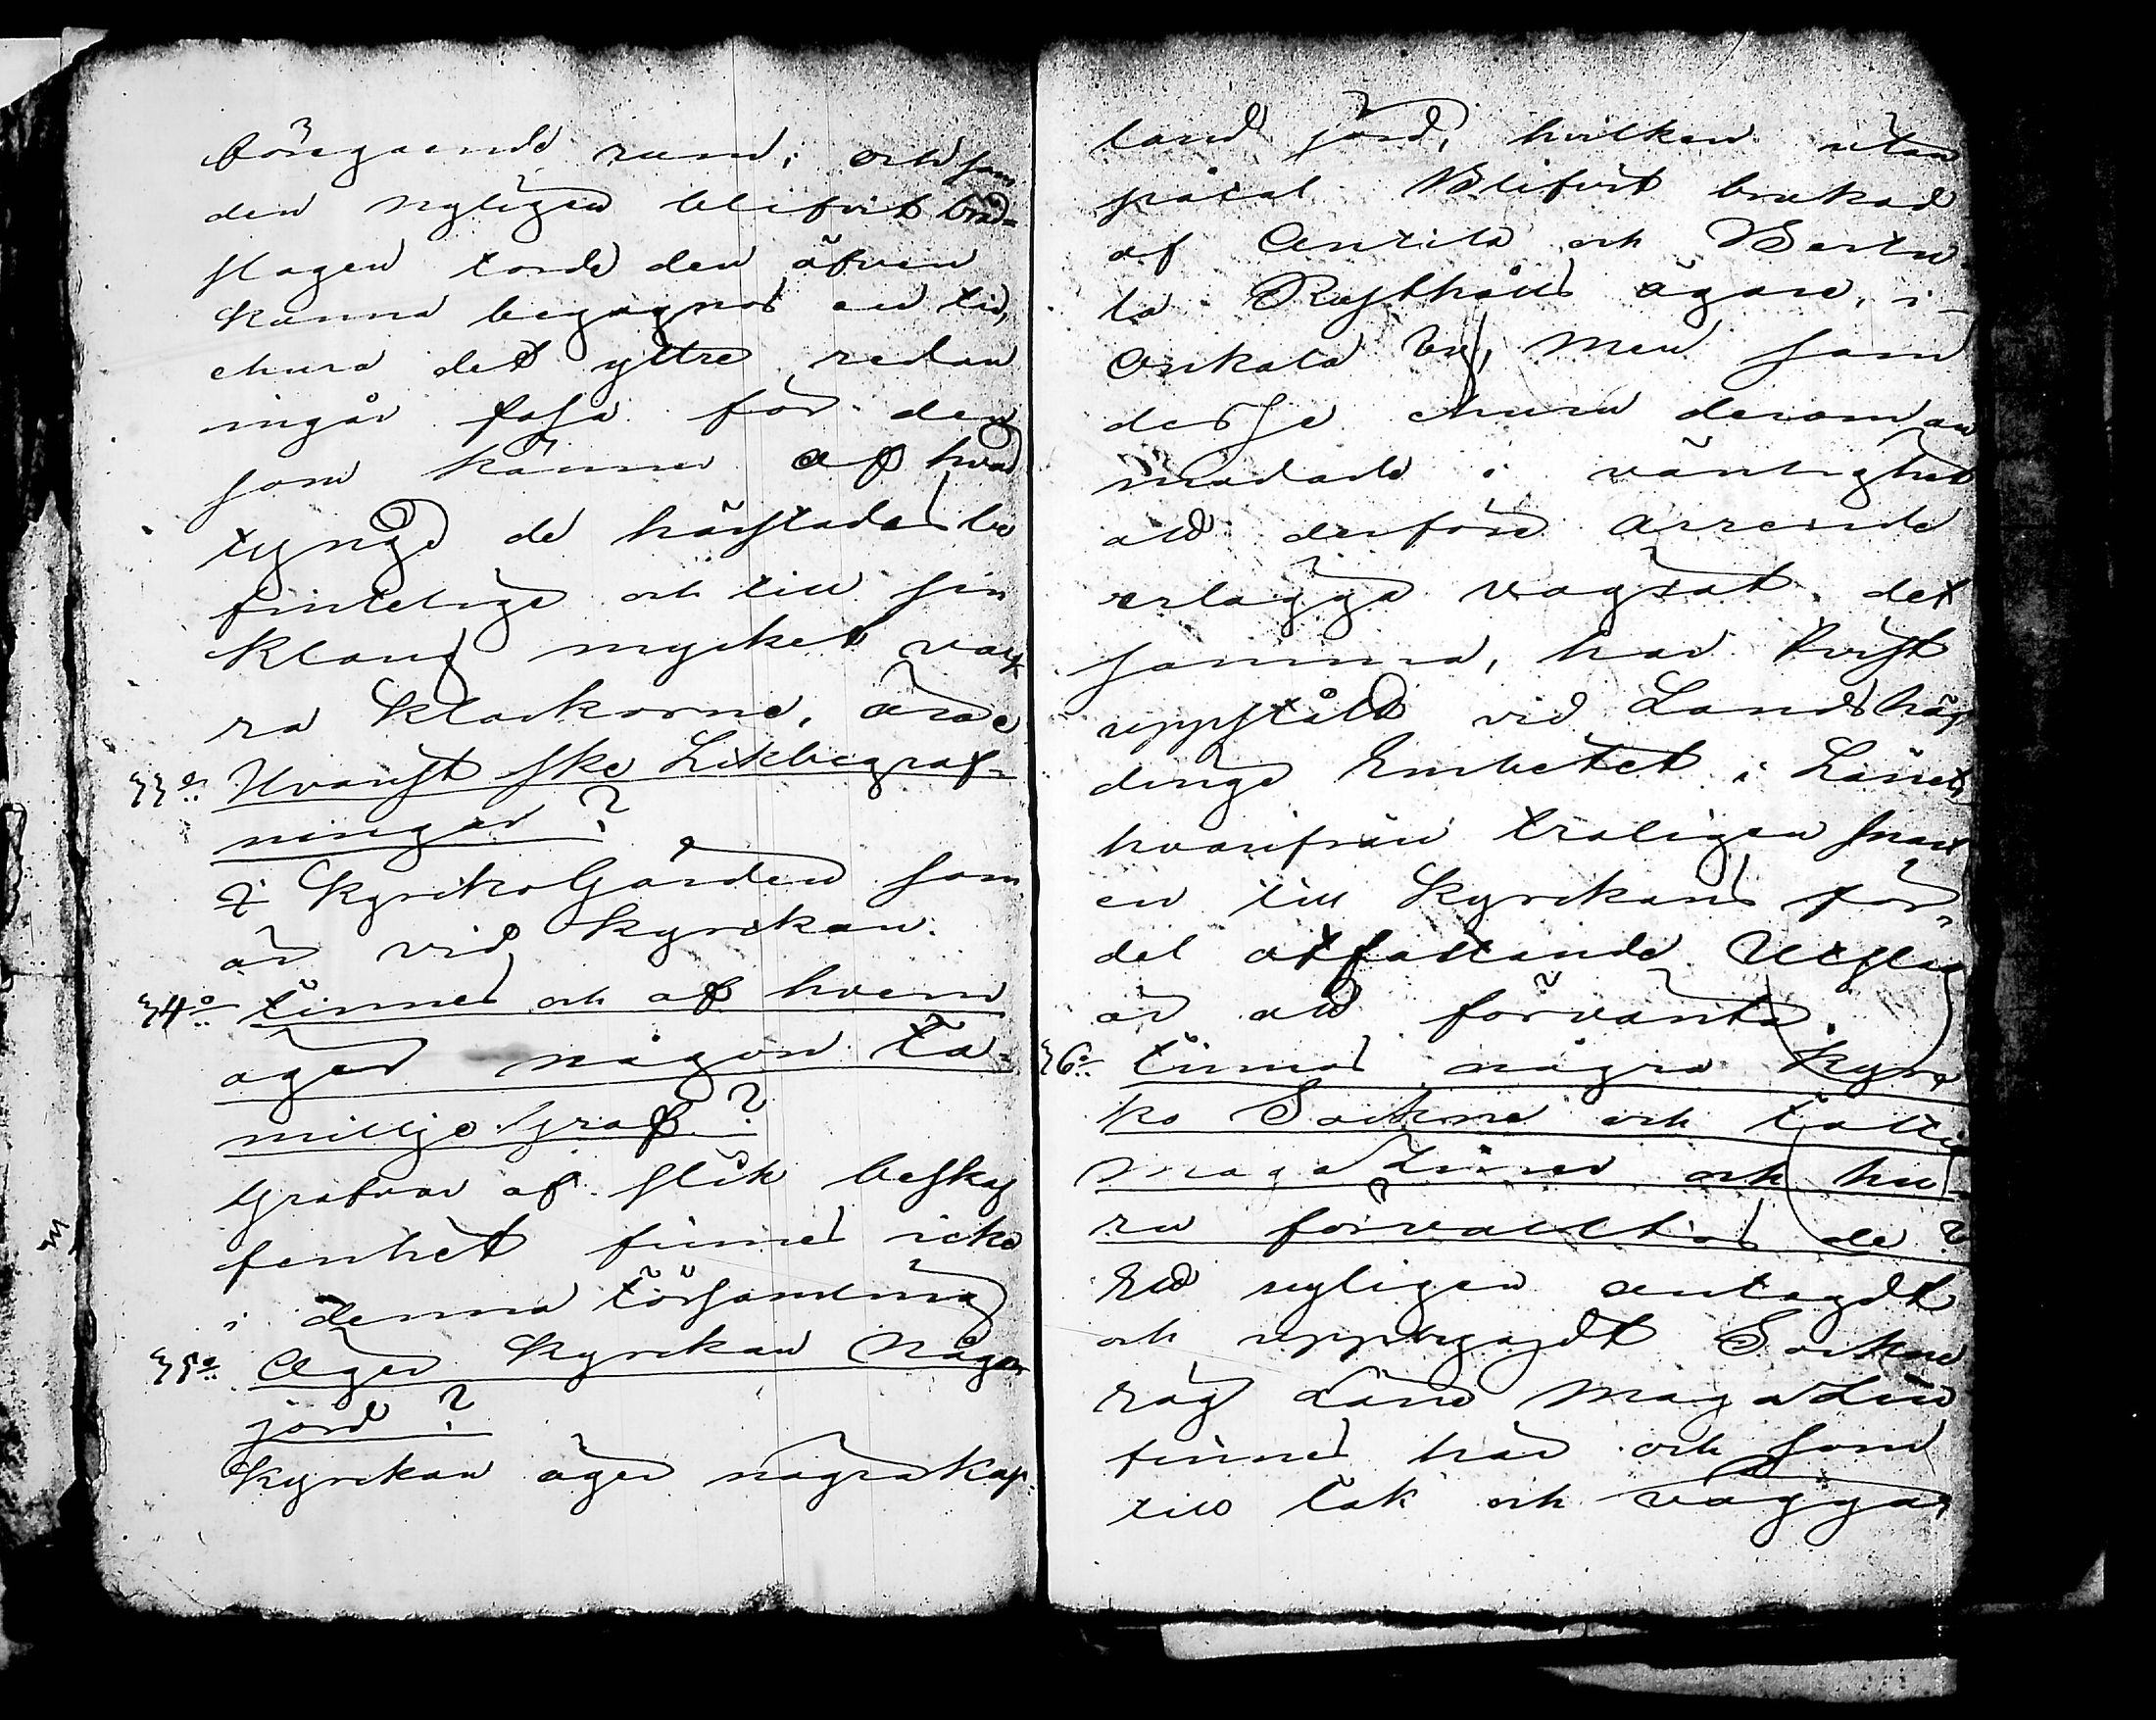 föregående rum; och som
den nyligen blifvit bräd-
slagen torde den äfven
kunna begagnas en tid,
ehuru det yttre redan
ingår fasa för den
som känner af hvad
tyngd de härstädes be
fintelige och till sin
klang mycket vack
ra klockorne, äro.
33o: Hvarest ske Likbegraf-
ningar?
I KyrkoGården som
är vid kyrckan.
34o: Finnes och af hvem
äges någon Fa-
millje Graf?
Grafvar af slik beskaf
fenhet finnes icke
i denna Församling
35o: Äger kyrckan Någon
jord?
Kyrckan äger några kap.
land jord, hvilken utan
påtal Blifvit brukad
af Anttila och Bertu-
la Rusthålls ägare, i
Arikala by, men som
desse ehuru derom an
modade i vänlighet
att derföre arrende
erlägga vägrat det
samma, har tvist
uppstått vid Landshöf
dinge Embetet i Länet,
hvarifrån troligen snart
en till kyrckans för-
del utfallande Utslag
är att förvänta.
36o: Finnas några Kyr-
ko Sockne och Fattig
magaziner och hu-
ru förvaltas de?
Ett nyligen antagdt
och uppbygdt Sockne
råg Låne Magazin
finnes här och som
till tak och väggar